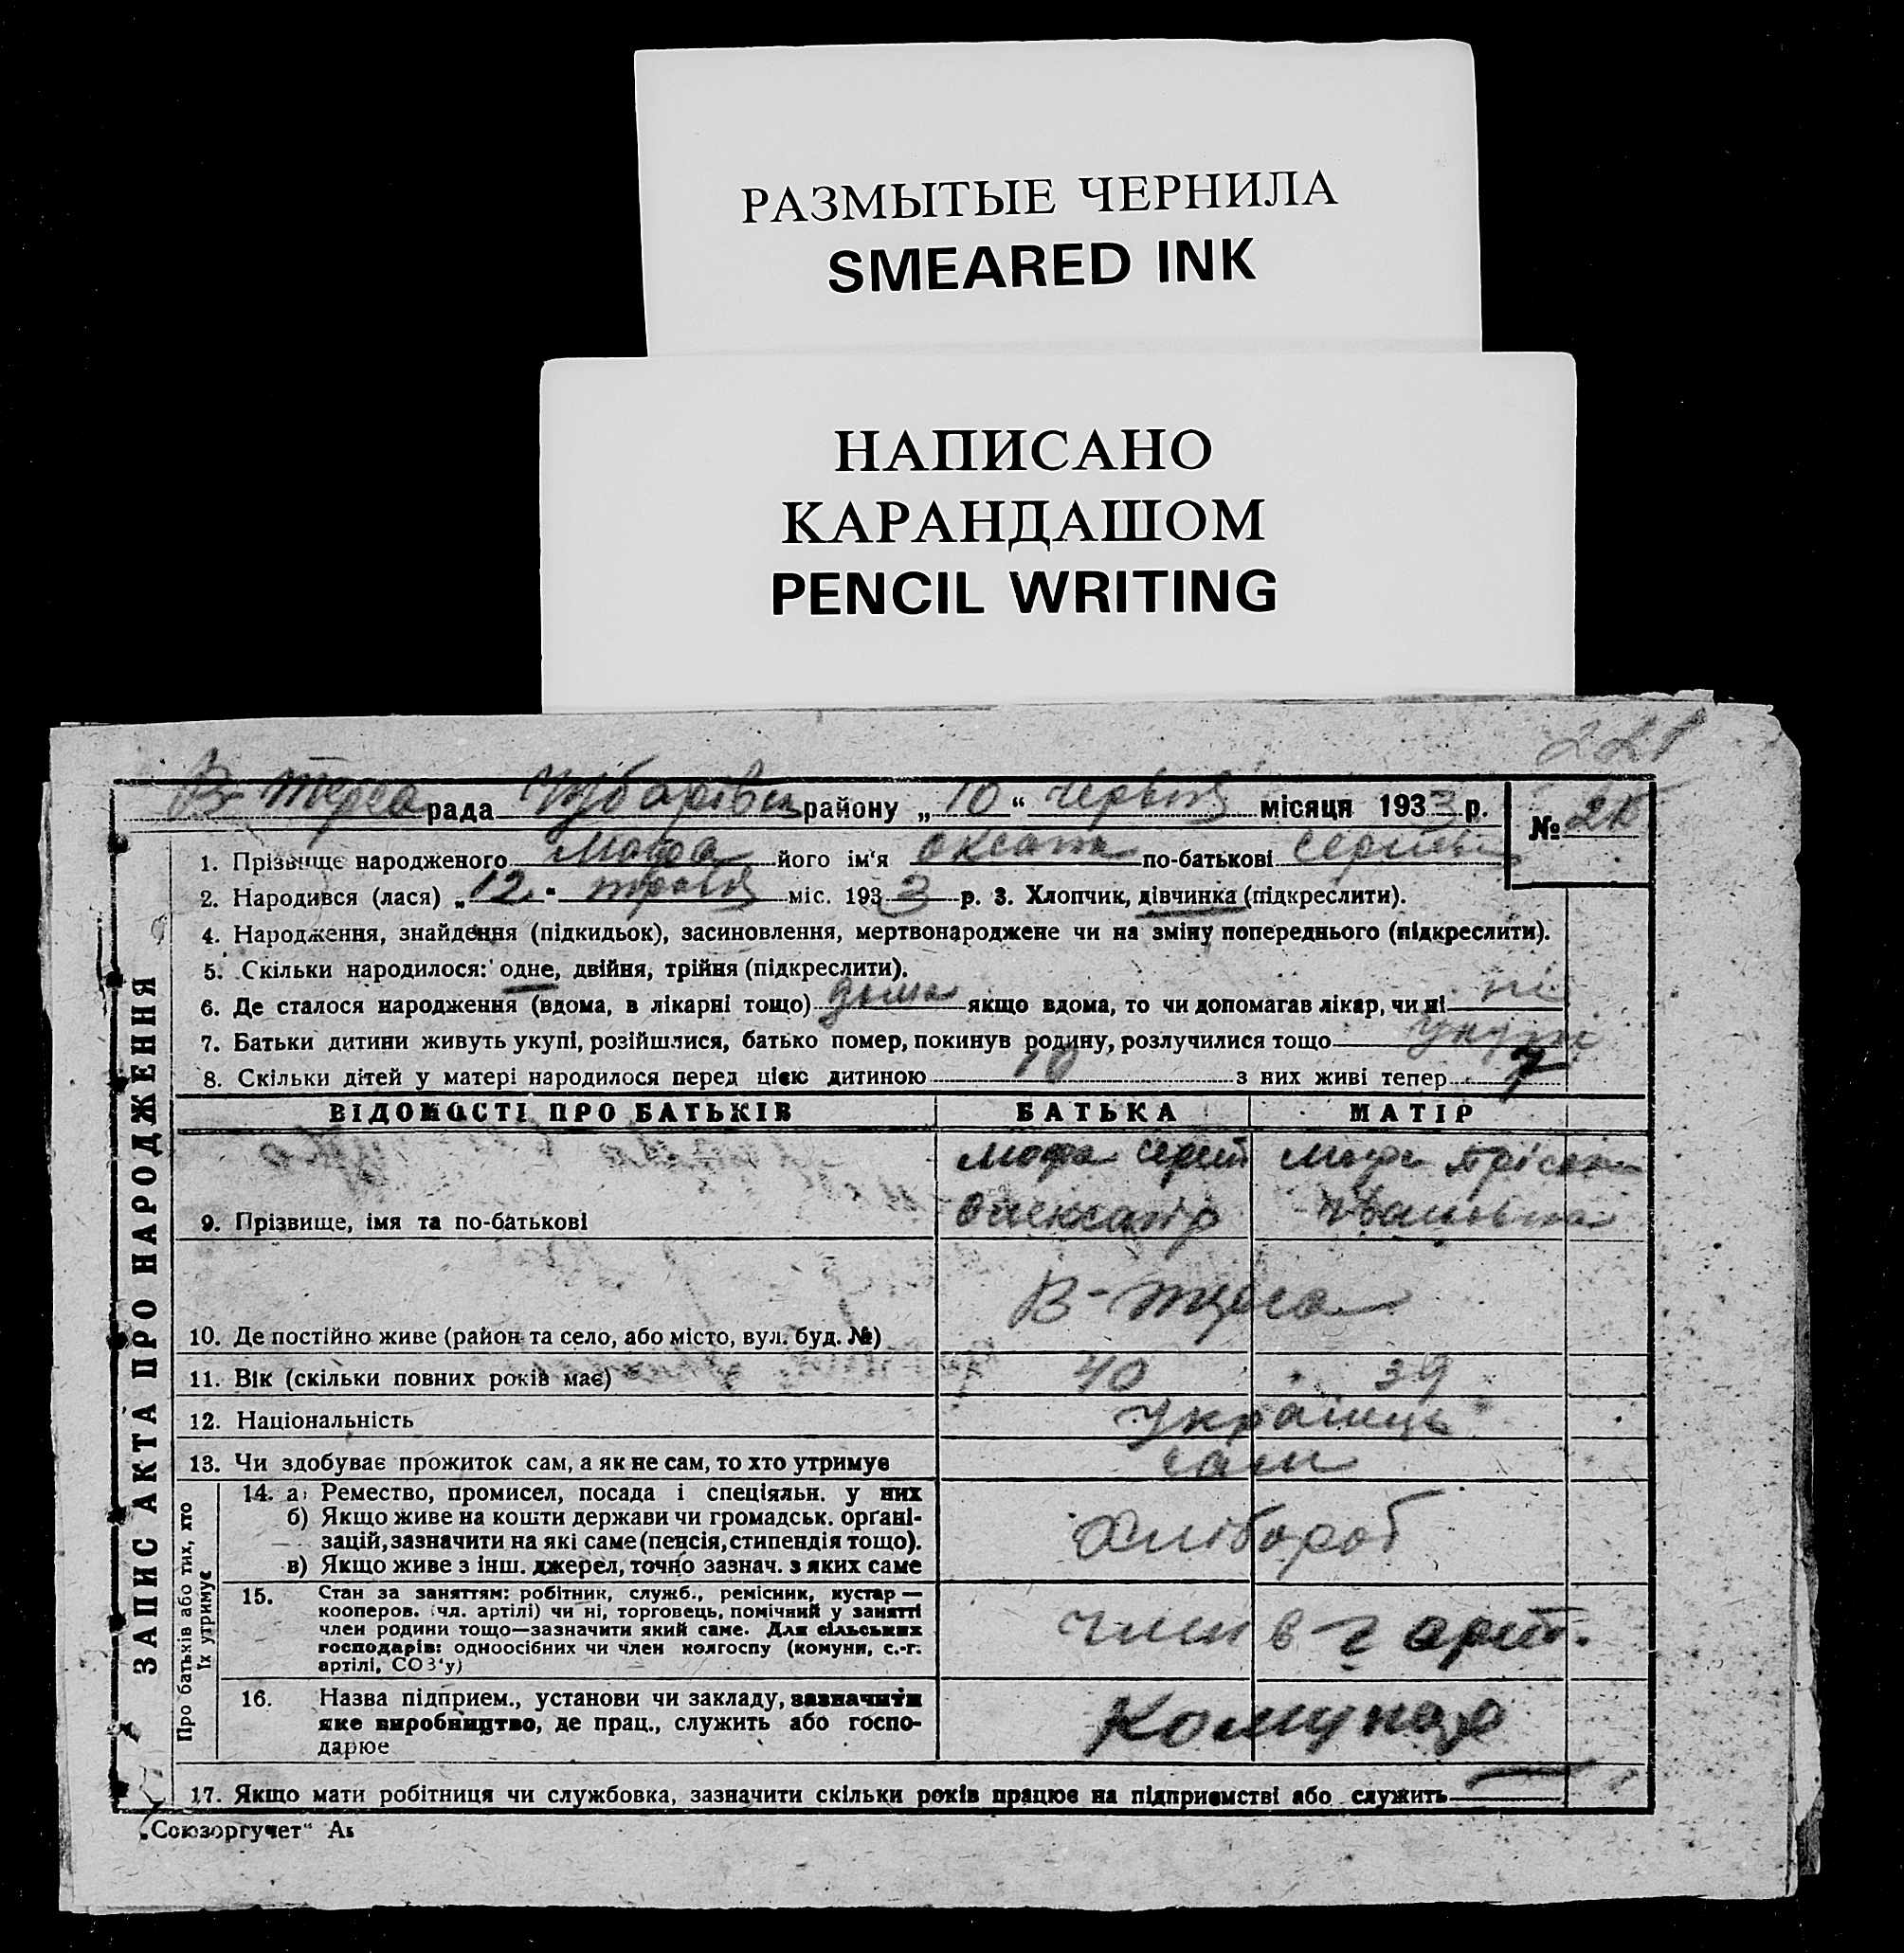 РАЗМЫТЫЕ ЧЕРНИЛА
SMEARED INK
НАПИСАНО
КАРАНДАШОМ
PENCIL WRITING
221
рада району „10“ червня місяця 1933 р. №
1. Прізвище народженого Мафа його ім'я Оксана по-батькові
2. Народився (лася) „12“ травня міс. 1933 р. 3. Хлопчик, дівчинка (підкреслити).
4. Народження, знайдення (підкидьок), засиновлення, мертвонароджене чи на зміну попереднього (підкреслити).
5. Скільки народилося: одне, двійня, трійня (підкреслити).
6. Де сталося народження (вдома, в лікарні тощо) дома якщо вдома, то чи допомагав лікар, чи ні ні
7. Батьки дитини живуть укупі, розійшлися, батько помер, покинув родину, розлучилися тощо укупі
8. Скільки дітей у матері народилося перед цією дитиною 10 з них живі тепер 7
ВІДОМОСТІ ПРО БАТЬКІВ БАТЬКА МАТІР
Мафа Мафа
9. Прізвище, імя та по-батькові
10. Де постійно живе (район та село, або місто, вул. буд. №)
11. Вік (скільки повних років має) 40 39
12. Національність Українець
13. Чи здобуває прожиток сам, а як не сам, то хто утримує сам
14. а) Ремество, промисел, посада і спеціяльн. у них
б) Якщо живе на кошти держави чи громадськ. орґані-
зацій, зазначити на які саме (пенсія, стипендія тощо).
в) Якщо живе з інш. джерел, точно зазнач. з яких саме
Хлібороб
15. Стан за заняттям: робітник, служб., ремісник, кустар —
кооперов. (чл. артілі) чи ні, торговець, помічний у занятті
член родини тощо—зазначити який саме. Для сільських
господарів: одноосібних чи член колгоспу (комуни, с.-г.
артілі, СОЗ'у)
член
16. Назва підприєм., установи чи закладу, зазначити
яке виробництво, де прац., служить або госпо-
дарює
Комунар
17. Якщо мати робітниця чи службовка, зазначити скільки років працює на підприємстві або служить
ЗАПИС АКТА ПРО НАРОДЖЕННЯ
Про батьків або тих, хто
їх утримує
„Союзоргучет“